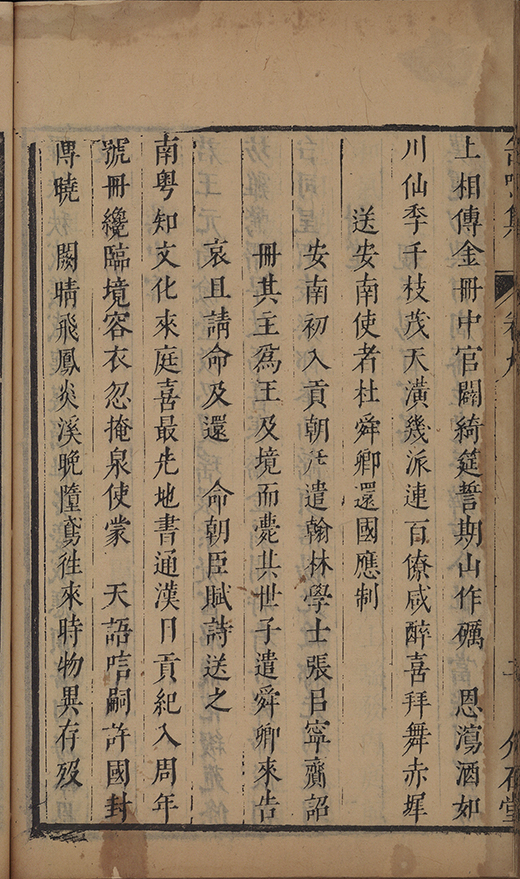 卷九
上相傳金冊中官闢綺筵誓期山作礪　恩瀉酒如
川仙季千枝茂天潢幾派連百僚咸醉喜拜舞赤墀
送安南使者杜舜卿還國應制
安南初入貢朝廷遣翰林學士張以寧齎詔
冊其主為王及境而薨其世子遣舜卿來告
哀且請命及還　命朝臣賦詩送之
南粤知文化來庭喜最先地書通漢日貢紀入周年
號冊纔臨境容衣忽掩泉使蒙　天語唁嗣許國封
傳曉　闕晴飛鳳炎溪晚墮鳶徃來時物異存歿